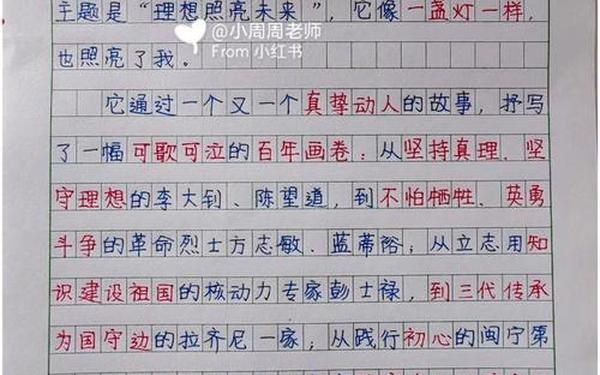 主题是“理想照亮未来”，它像一盏灯一样，
@小周周老师
From 小红书
也照亮了我。
它通过一个又一个真挚动人的故事，抒写
了一幅可歌可泣的百年画卷：从坚持真理、坚
守理想的李大钊、陈望道，到不怕牺牲、英勇
斗争的革命烈士方志敏、蓝蒂裕；从立志用知
识建设祖国的核动力专家彭士禄，到三代传承
为国守边的拉齐尼一家；从践行初心的闽宁第